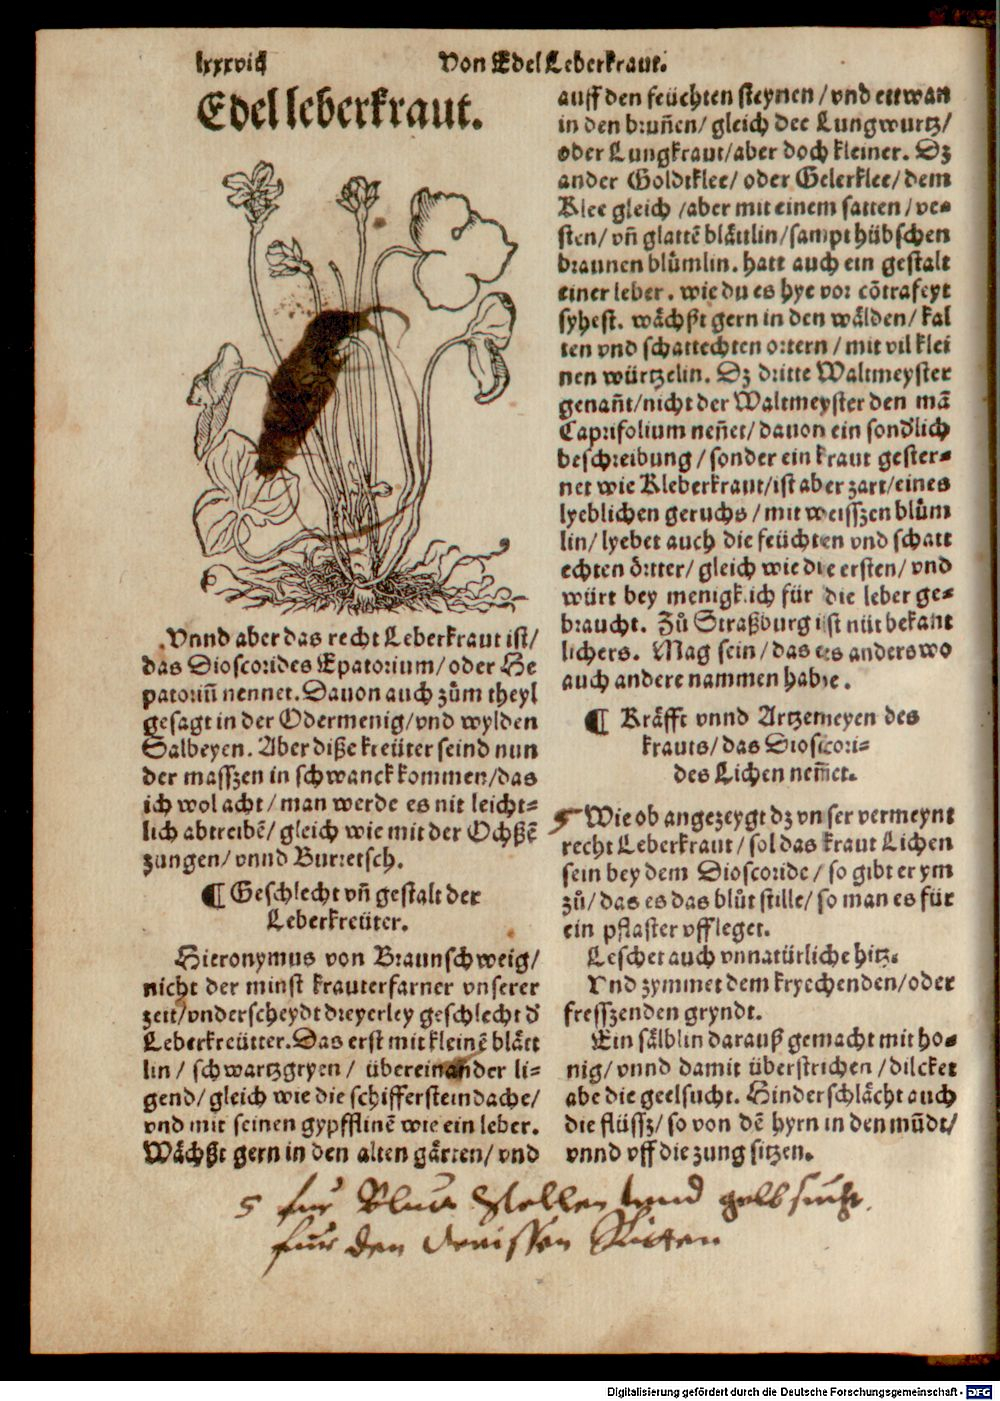 lxxxviij
Von Edel Leberkraut.
Edel leberkraut.
Vnnd aber das recht Leberkraut ist/
das Dioscorides Epatorium/oder He
patoriũ nennet. Dauon auch zům theyl
gesagt in der Odermenig/vnd wylden
Salbeyen. Aber diße kreüter seind nun
der masszen in schwanck kommen/das
ich wol acht/man werde es nit leicht=
lich abtreibẽ/gleich wie mit der Ochßẽ
zungen/vnnd Burretsch.
¶ Geschlecht vñ gestalt der
Leberkreüter.
Hieronymus von Braunschweig/
nicht der minst krauterfarner vnserer
zeit/vnderscheydt dreyerley geschlecht d'
Leberkreütter. Das erst mit kleinẽ blätt
lin/ schwartzgryen/ übereinander li=
gend/gleich wie die schiffersteindache/
vnd mit seinen gypfflinẽ wie ein leber.
Wächßt gern in den alten gärten/vnd
auff den feüchten steynen/vnd ettwan
in den bruñen/gleich der Lungwurtz/
oder Lungkraut/aber doch kleiner. Dz
ander Goldtklee/ oder Gelerklee/dem
Klee gleich /aber mit einem satten/ve=
sten/vñ glattẽ blättlin/sampt hübschen
braunen blůmlin. hatt auch ein gestalt
einer leber. wie du es hye vor cõtrafeyt
syhest. wächßt gern in den wälden/kal
ten vnd schattechten ortern/mit vil klei
nen würtzelin. Dz dritte Waltmeyster
genañt/nicht der Waltmeyster den mã
Caprifolium neñet/dauon ein sond'lich
beschreibung/sonder ein kraut gester=
net wie Kleberkraut/ist aber zart/eines
lyeblichen geruchs/mit weisszen blům
lin/lyebet auch die feüchten vnd schatt
echten örtter/gleich wie die ersten/vnd
würt bey menigklich für die leber ge=
braucht. Zů Straßburg ist nüt bekant
lichers. Mag sein/das es anderswo
auch andere nammen habe.
¶ Kräfft vnnd Artzeneyen des
krauts/das Dioscori=
des Lichen neñet.
Wie ob angezeygt dz vnser vermeynt
recht Leberkraut/sol das kraut Lichen
sein bey dem Dioscoride/so gibt er ym
zů/das es das blůt stille/so man es für
ein pflaster vffleget.
Leschet auch vnnatürliche hitz.
Vnd zymmet dem kryechenden/oder
fresszenden gryndt.
Ein sälblin darauß gemacht mit ho=
nig/vnnd damit überstrichen/dilcket
abe die geelsucht. Hinderschlächt auch
die flüssz/so von dẽ hyrn in den mũdt/
vnnd vff die zung sitzen.
5 fur Blutt stellen vnnd gelbsucht.
fur den
Digitalisierung gefördert durch die Deutsche Forschungsgemeinschaft - DFG